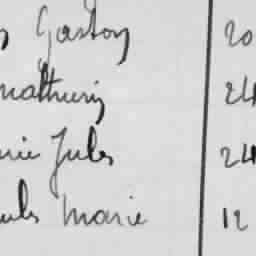 Gaston 20
Mathurin 24
Jules 24
Marie 12